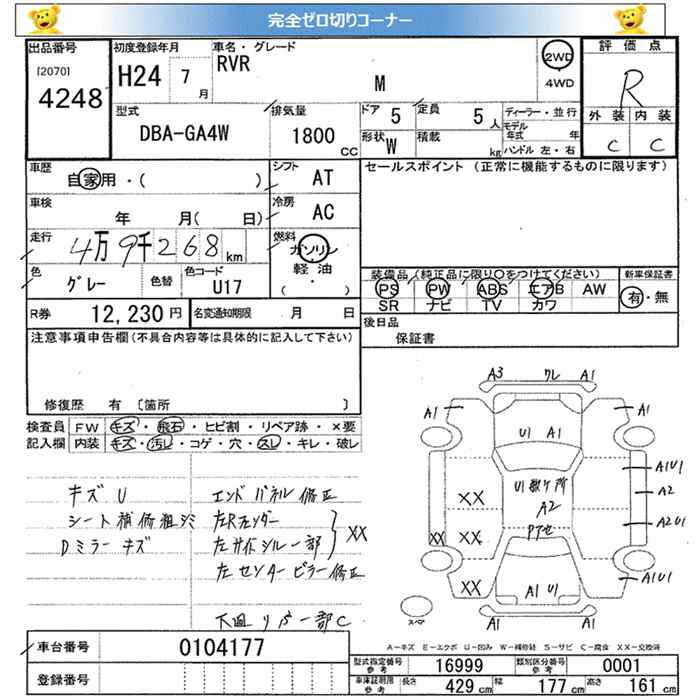 完全ゼロ切りコーナー
出品番号
[2070]
4248
初度登録年月
H24 7月
車名・グレード
RVR
M
2WD
4WD
評価点
R
外装 内装
C C
型式
DBA-GA4W
排気量
1800
CC
ドア 5
定員 5人
形状 W
積載 kg
ディーラー・並行
モデル年式 年
ハンドル 左・右
車歴
自家用・( )
シフト
AT
セールスポイント (正常に機能するものに限ります)
車検
年 月( 日)
冷房
AC
走行
4万9千268km
燃料
ガソリン
軽油
( ・ )
色
グレー
色替
色コード
U17
装備品(純正品に限り○をつけてください)
PS PW ABS エアB AW
SR ナビ TV カワ
新車保証書
有・無
R券 12,230円
名変通知期限 月 日
後日品
保証書
注意事項申告欄(不具合内容等は具体的に記入して下さい)
修復歴 有 〔箇所 〕
検査員 FW キズ・飛石・ヒビ割・リペア跡・×要
記入欄 内装 キズ・汚レ・コゲ・穴・スレ・キレ・破レ
キズU
シート補修粗シミ
Dミラーキズ
エンドパネル修正
左Rフェンダー
左サイドシル一部
XX
左センターピラー修正
下廻リ
一部C
A3 ワレ A1
A1 A1
U1 A1
A1U1
A2
A2U1
A1U1
A2
XX
XX XX
XX
A1 U1
A1 A1
スペア
A-キズ E-エクボ U-凹み W-補修跡 S-サビ C-腐食 XX-交換済
車台番号 0104177
登録番号
型式指定番号 参考 16999
類別区分番号 参考 0001
車庫証明用 参考 長さ 429cm 幅 177cm 高さ 161cm